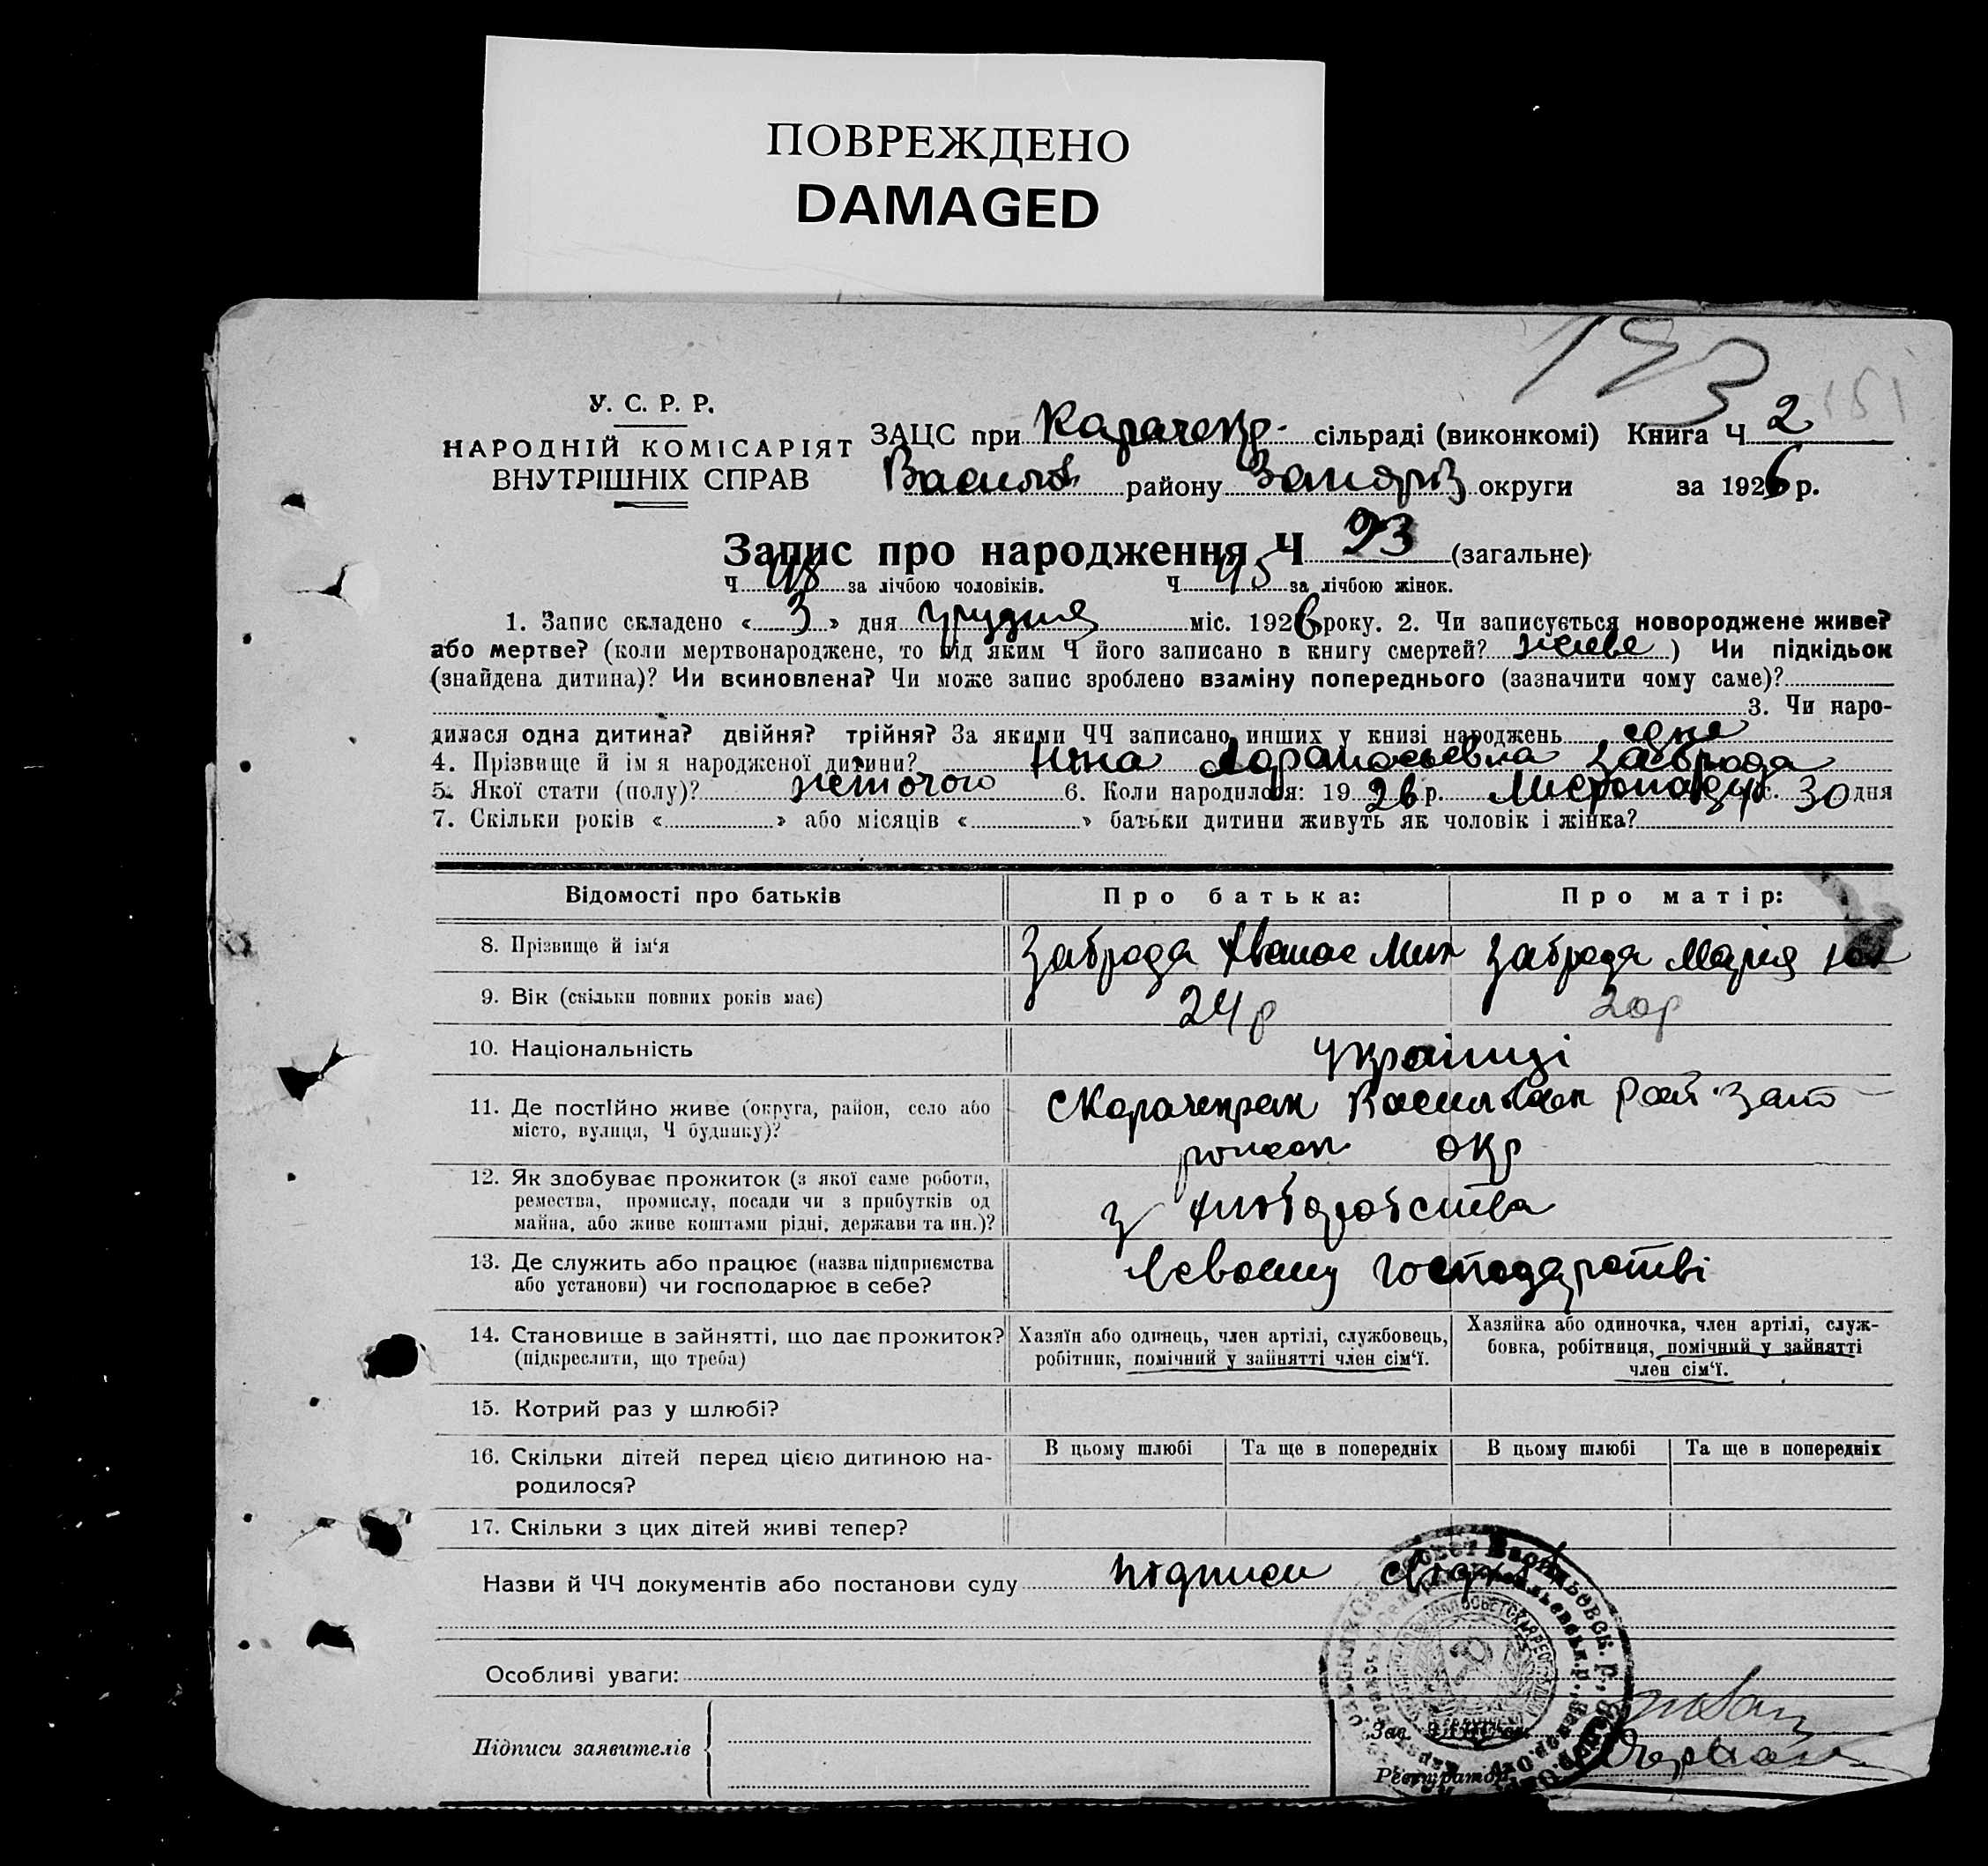 ПОВРЕЖДЕНО
DAMAGED
У. С. Р. Р.
НАРОДНІЙ КОМІСАРІЯТ
ВНУТРІШНІХ СПРАВ
ЗАЦС при Карачекр. сільраді (виконкомі) Книга Ч 2
Василів району Запоріз округи за 1926 р.
Запис про народження Ч 93 (загальне)
Ч 48 за лічбою чоловіків. Ч 45 за лічбою жінок.
1. Запис складено « 3 » дня грудня міс. 1926 року. 2. Чи записується новороджене живе?
або мертве? (коли мертвонароджене, то під яким Ч його записано в книгу смертей? живе ) Чи підкідьок
(знайдена дитина)? Чи всиновлена? Чи може запис зроблено взаміну попереднього (зазначити чому саме)?
3. Чи наро-
дилася одна дитина? двійня? трійня? За якими ЧЧ записано инших у книзі народжень одне
4. Прізвище й ім я народженої дитини? Нина Заброда
5. Якої статі (полу)? жіночого 6. Коли народилося: 19 26 р. Листопада 30 дня
7. Скільки років « » або місяців « » батьки дитини живуть як чоловік і жінка?
Відомості про батьків Про батька: Про матір:
8. Прізвище й ім‘я Заброда Хванас Мих Заброда Марія
9. Вік (скільки повних років має) 24 р 20 р
10. Національність Українці
11. Де постійно живе (округа, район, село або
місто, вулиця, Ч будинку)?
с Карачекрак Васильвск рай. Запо
рожск окр
12. Як здобуває прожиток (з якої саме роботи,
ремества, промислу, посади чи з прибутків од
майна, або живе коштами рідні, держави та ин.)?
з хліборобства
13. Де служить або працює (назва підприємства
або установи) чи господарює в себе?
в своему господарстві
14. Становище в зайнятті, що дає прожиток?
(підкреслити, що треба)
Хазяїн або одинець, член артілі, службовець,
робітник, помічний у зайнятті член сім‘ї.
Хазяйка або одиночка, член артілі, служ-
бовка, робітниця, помічний у зайнятті
член сім‘ї.
15. Котрий раз у шлюбі?
16. Скільки дітей перед цією дитиною на-
родилося?
В цьому шлюбі Та ще в попередніх В цьому шлюбі Та ще в попередніх
17. Скільки з цих дітей живі тепер?
Назви й ЧЧ документів або постанови суду підписи
Особливі уваги:
Підписи заявителів
Зав.
Реєстратор